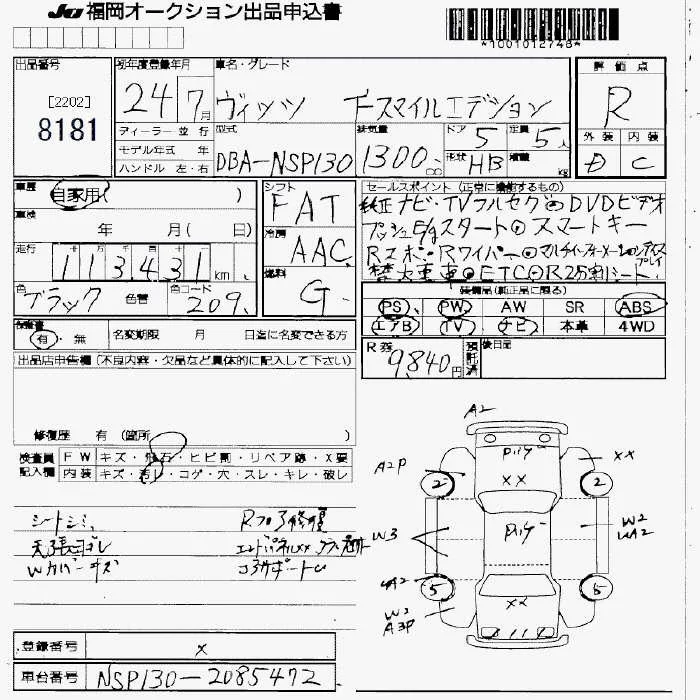 JU 福岡オークション出品申込書
*1001012748*
出品番号
[2202]
8181
初年度登録年月
24 7月
ディーラー 並 行
モデル年式 年
ハンドル 左・右
車名・グレード
ヴィッツ Fスマイルエディション
型式
DBA-NSP130
排気量
1300 cc
ドア 5
定員 5人
形状 HB
積載 kg
評価点
R
外装 内装
D C
車歴
自家用( )
車検
年 月( 日)
走行
113,431 km
色
ブラック
色替
色コード
209
シフト
FAT
冷房
AAC
燃料
G
セールスポイント(正常に機能するもの)
純正ナビ・TVフルセグ DVDビデオ
プッシュE/gスタート スマートキー
Rスポ・Rワイパー マルチインフォメーションディスプレイ
禁煙車 ETC R25割シート
装備品(純正品に限る)
PS PW AW SR ABS
エアB TV ナビ 本革 4WD
有・無
名変期限 月 日迄に名変できる方
R券
9,840円
預託済
後日品
出品店申告欄(不良内容・欠品など具体的に記入して下さい)
修復歴 有(箇所 )
検査員記入欄
FW キズ・飛石・ヒビ割・リペア跡・X要
内装 キズ・汚レ・コゲ・穴・スレ・キレ・破レ
シートシミ
天張ヨゴレ
Wカバーキズ
Rフロア修復
エンドパネルXX
コアサポートU
A2
A2P
XX
2
2
XX
W3
W2
UA2
UA2
5
5
W2
A3P
XX
登録番号
x
車台番号
NSP130-2085472